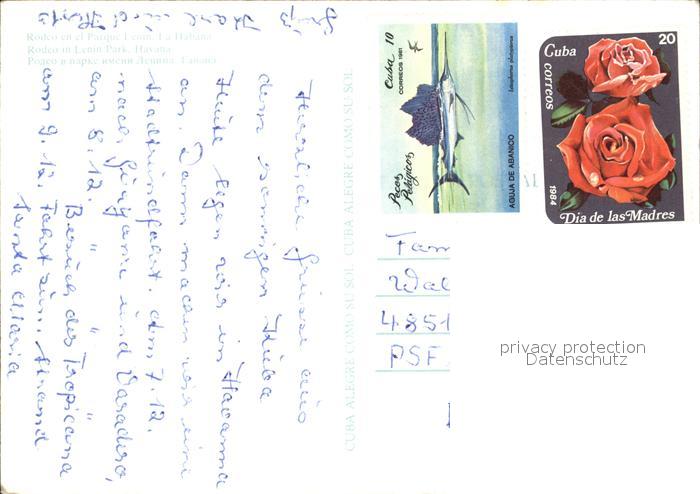 Rodeo en el Parque Lenin. La Habana
Rodeo in Lenin Park, Havana
Родео в парке имени Ленина. Гавана
Herzliche Grüsse aus
dem sonnigen Kuba
Heute legen wir in Havanna
an. Dann machen wir eine
Stadtrundfahrt. Am 7.12.
nach und Varadero,
am 8.12. " "
Besuch des Tropicana
am 9.12. Fahrt zum Strand
Santa Maria
CUBA ALEGRE COMO SU SOL CUBA ALEGRE COMO SU SOL
Cuba 10
CORREOS 1981
Peces Pelágicos
AGUJA DE ABANICO
Cuba
correos
20
1984
Día de las Madres
Fam
Wal
4851
PSF
privacy protection
Datenschutz